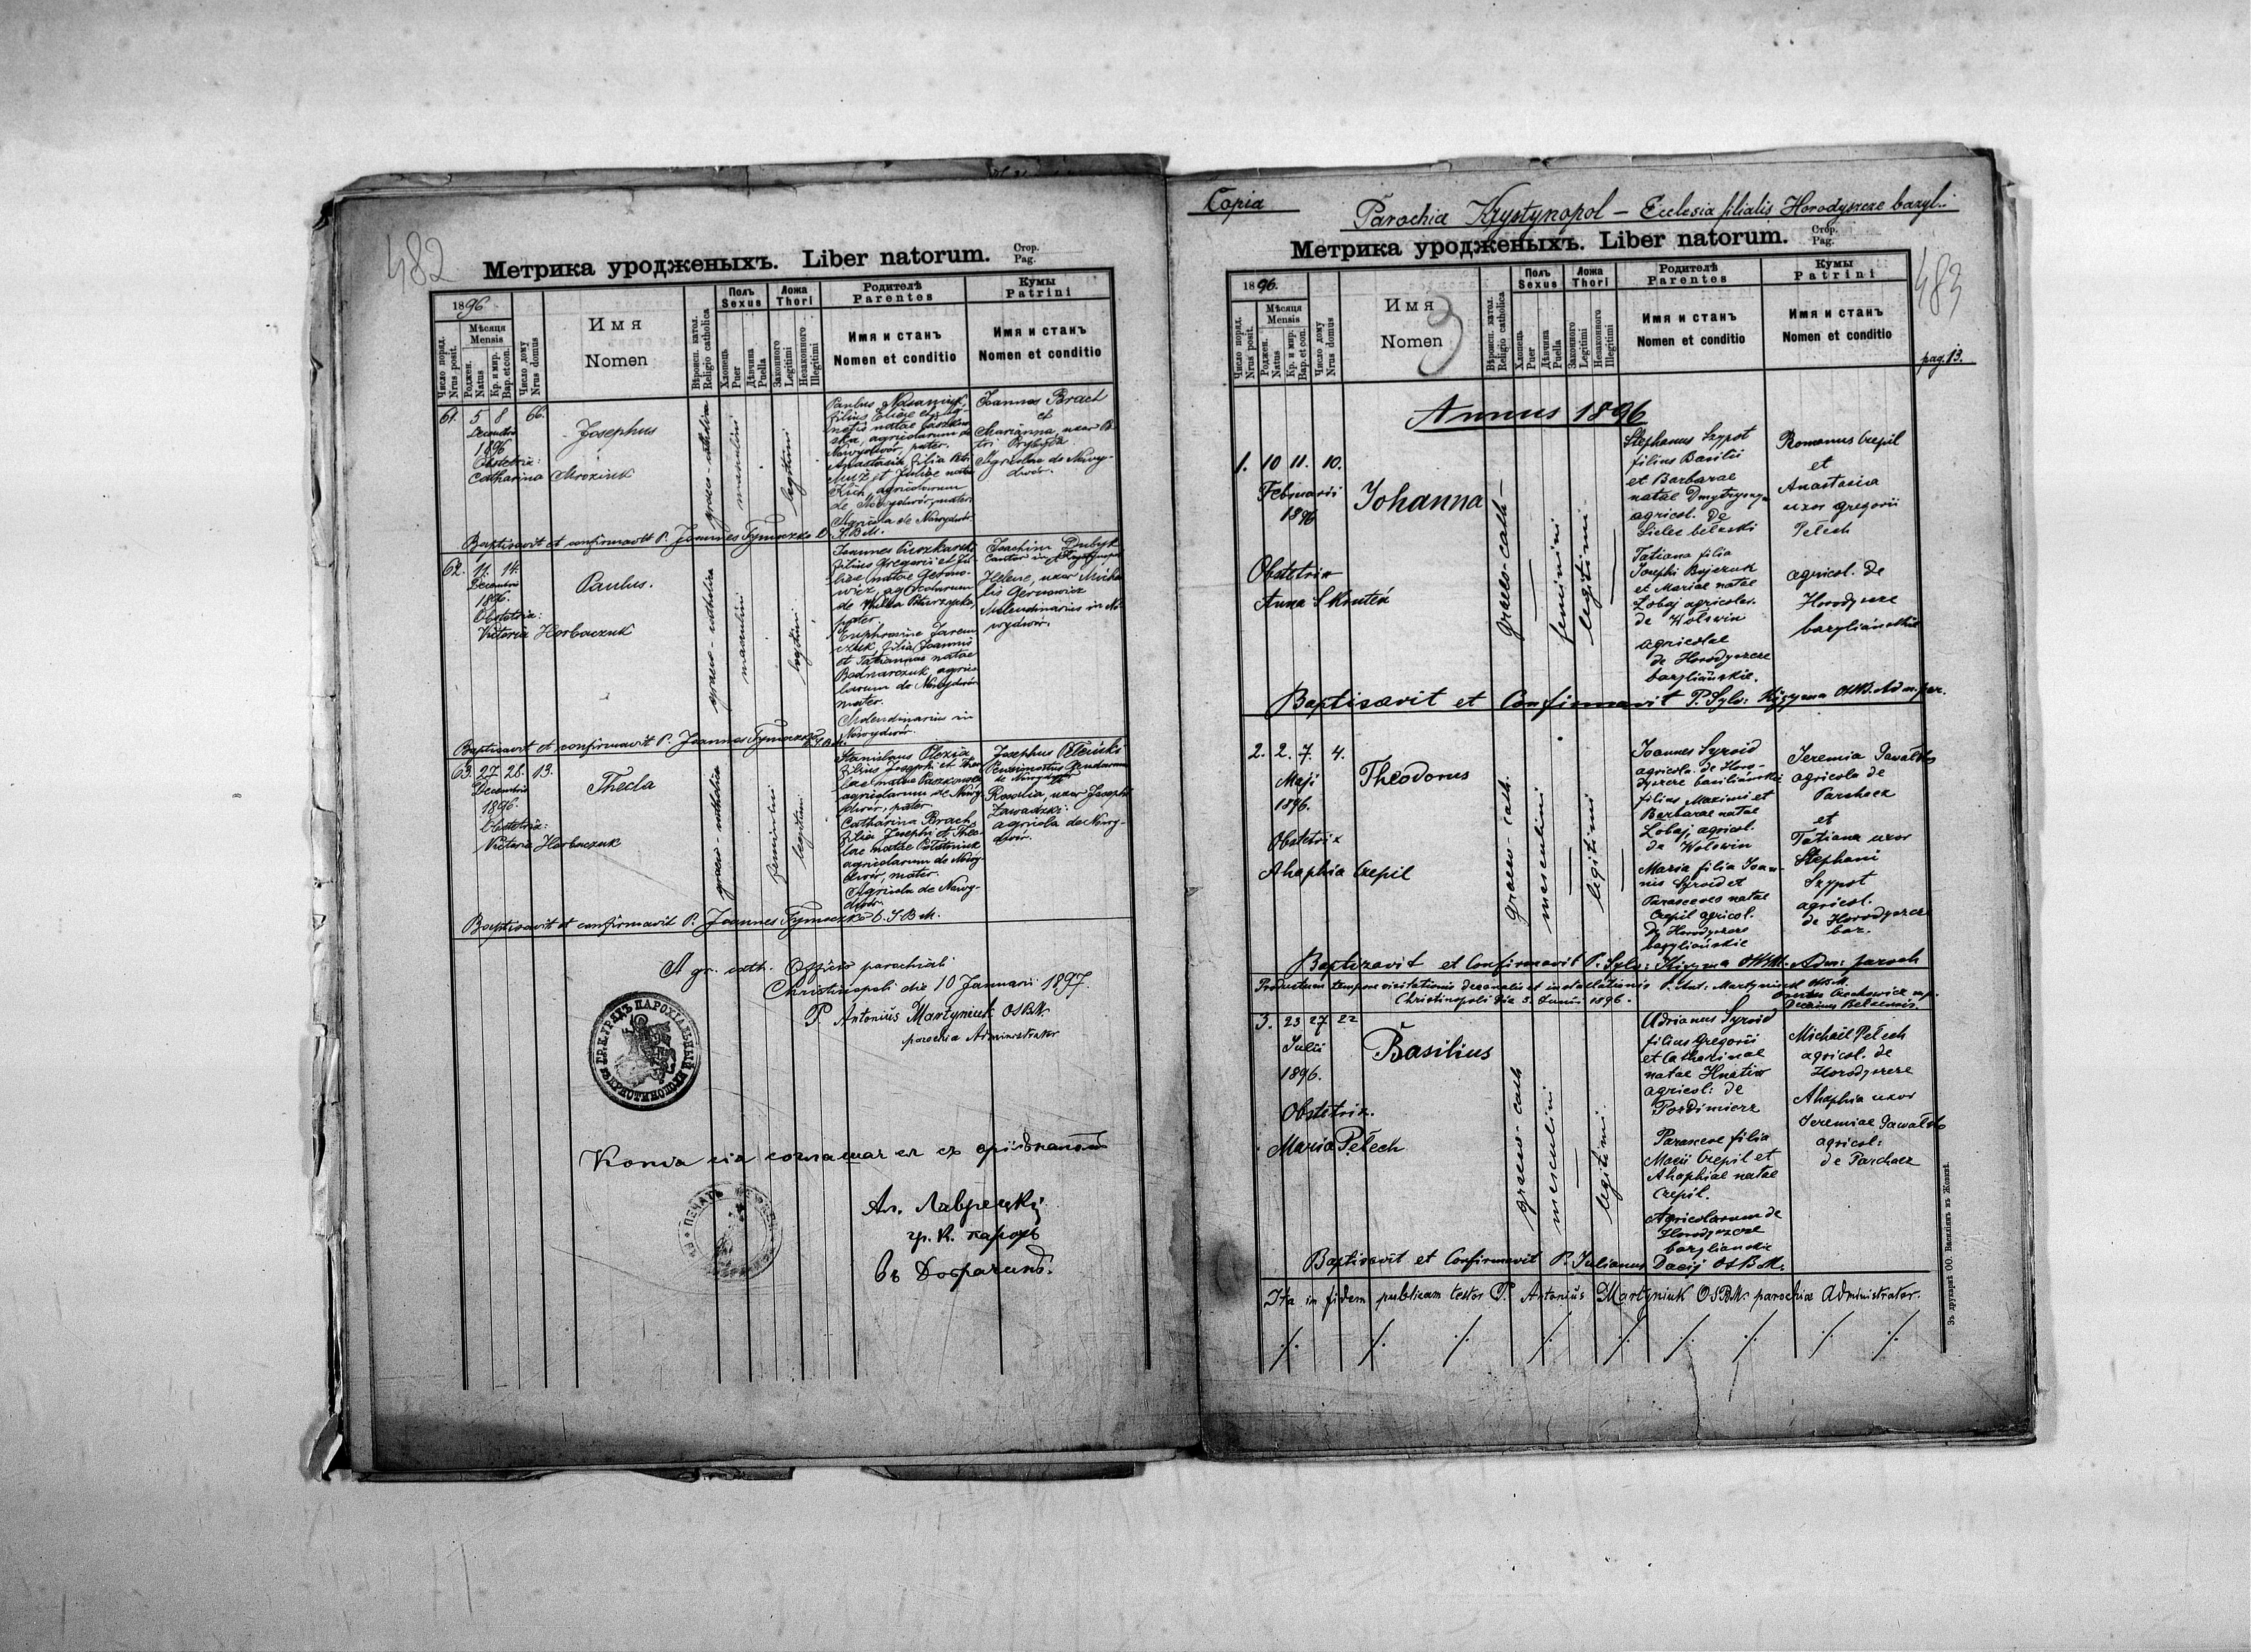 482
Метрика уродженыхъ. Liber natorum.
Стор.
Pag.
1896
Число поряд.
Nrus posit.
Мѣсяця
Mensis
Роджен.
Natus
Кр. и мир.
Bap. et con.
Число дому
Nrus domus
Имя
Nomen
Вѣроисп. катол.
Religio catholica
Полъ
Sexus
Хлопець
Puer
Дѣвчина
Puella
Ложа
Thori
Законного
Legitimi
Незаконного
Illegitimi
Родителѣ
Parentes
Имя и станъ
Nomen et conditio
Кумы
Patrini
Имя и станъ
Nomen et conditio
61. 5 8 66.
Decembris
1896
Obstetrix:
Catharina Mroziuk
Josephus
graeco-catholica
masculini
legitimi
Paulus
filius
natae
agricolarum de
Nowydwór, pater.
Anastasia, filia
et Juliae natae
agricolarum
de Nowydwór, mater.
Agricola de Nowydwór.
Joannes Brach
et
Marianna, uxor
Agricolae de Nowy-
dwór.
Baptisavit et confirmavit P. Joannes Tymoczko O.
S. B. M.
62. 11. 14.
Decembris
1896.
Obstetrix:
Victoria Horbaczuk
Paulus.
graeco-catholica
masculini
legitimi
Joannes Puszkarski
filius Gregorii et Ju-
liae natae Gerono-
wicz, agricolarum
de
pater.
Euphrosine Jarem-
czuk, filia Joannis
et Tatiannae natae
Bodnarczuk, agrico-
larum de Nowydwór
mater.
Molendinarius in
Nowydwór.
Joachim Dubyk
Cantor in Krystynopol
Helene, uxor Micha-
lis
Molendinarius in No-
wydwór.
Baptisavit et confirmavit P. Joannes Tymoczko O.S.B.M.
63. 27 28. 13.
Decembris
1896.
Obstetrix:
Victoria Horbaczuk
Thecla
graeco-catholica
feminini
legitimi
Stanislaus
filius Josephi et Thec-
lae natae
agricolarum de Nowy-
dwór, pater.
Catharina Brach
filia Josephi et Thec-
lae natae
agricolarum de Nowy-
dwór, mater.
Agricola de Nowy-
dwór.
Josephus
de Nowydwór
Rosalia, uxor Josephi
Zawadzki:
agricola de Nowy-
dwór.
Baptisavit et confirmavit P. Joannes Tymoczko O. S. B. M.
A gr. cath. Officio parochiali
Christinopoli die 10 Januarii 1897.
P. Antonius Martyniuk OSBM.
parochiae Administrator
Копія сія
Ал. Лаврецкій
гр. к. парох
въ Добрачинѣ.
Copia
Parochia Krystynopol – Ecclesia filialis Horodyszcze bazyl.
Метрика уродженыхъ. Liber natorum.
Стор.
Pag.
483
pag. 13.
1896.
Число поряд.
Nrus posit.
Мѣсяця
Mensis
Роджен.
Natus
Кр. и мир.
Bap. et con.
Число дому
Nrus domus
Имя
Nomen
3
Вѣроисп. катол.
Religio catholica
Полъ
Sexus
Хлопець
Puer
Дѣвчина
Puella
Ложа
Thori
Законного
Legitimi
Незаконного
Illegitimi
Родителѣ
Parentes
Имя и станъ
Nomen et conditio
Кумы
Patrini
Имя и станъ
Nomen et conditio
Annus 1896
1. 10 11. 10.
Februarii
1896
Obstetrix
Anna
Johanna
graeco-cath
feminini
legitimi
Stephanus Szypot
filius Basilii
et Barbarae
natae
agricol. de
Sielec bełzski
Tatiana filia
Josephi Bojczuk
et Mariae natae
Lobaj agricolar.
de Wolswin
agricolae
de Horodyszcze
bazyliańskie.
Romanus Czepil
et
Anastasia
uxor gregorii
Pełech
agricol. de
Horodyszcze
bazyliańskie
Baptisavit et Confirmavit P. Sylv: Kizyma OSBM. Adm. par.
2. 2. 7. 4.
Maji
1896.
Obstetrix
Ahaphia Czepil
Theodorus
graeco-cath.
masculini
legitimi
Joannes Syroid
agricola de Horo-
dyszcze baziliańskie
filius Maximi et
Barbarae natae
Lobaj, agricol.
de Wolswin
Maria filia Joan-
nis Syroid et
Parasceves natae
Czepil agricol.
de Horodyszcze
bazyliańskie
Jeremia
agricola de
Parchacz
et
Tatiana uxor
Stephani
Szypot
agricol.
de Horodyszcze
baz.
Baptizavit et Confirmavit P. Sylv: Kizyma OSBM. Adm: paroch
Productum tempore visitationis decanalis et installationis P. Ant. Martyniuk OSBM.
Christinopoli die 5. Junii 1896.
Decanus Belzensis.
3. 23 27 22
Julii
1896.
Obstetrix.
Maria Pełech
Basilius
graeco-cath
masculini
legitimi.
Adrianus Syroid
filius Gregorii
et Catharinae
natae Hnatiw
agricol: de
Pozdimierz
Parasceve filia
Macii Czepil et
Ahaphiae natae
Czepil.
Agricolarum de
Horodyszcze
bazylianskie
Michael Pełech
agricol. de
Horodyszcze
Ahaphia uxor
Jeremiae
agricol:
de Parchacz
Baptisavit et Confirmavit P. Julianus Dacij OSBM.
Ita in fidem publicam testor P. Antonius Martyniuk OSBM. parochiae Administrator.
Зъ друкарнѣ ОО. Василіянъ въ Жовквѣ.